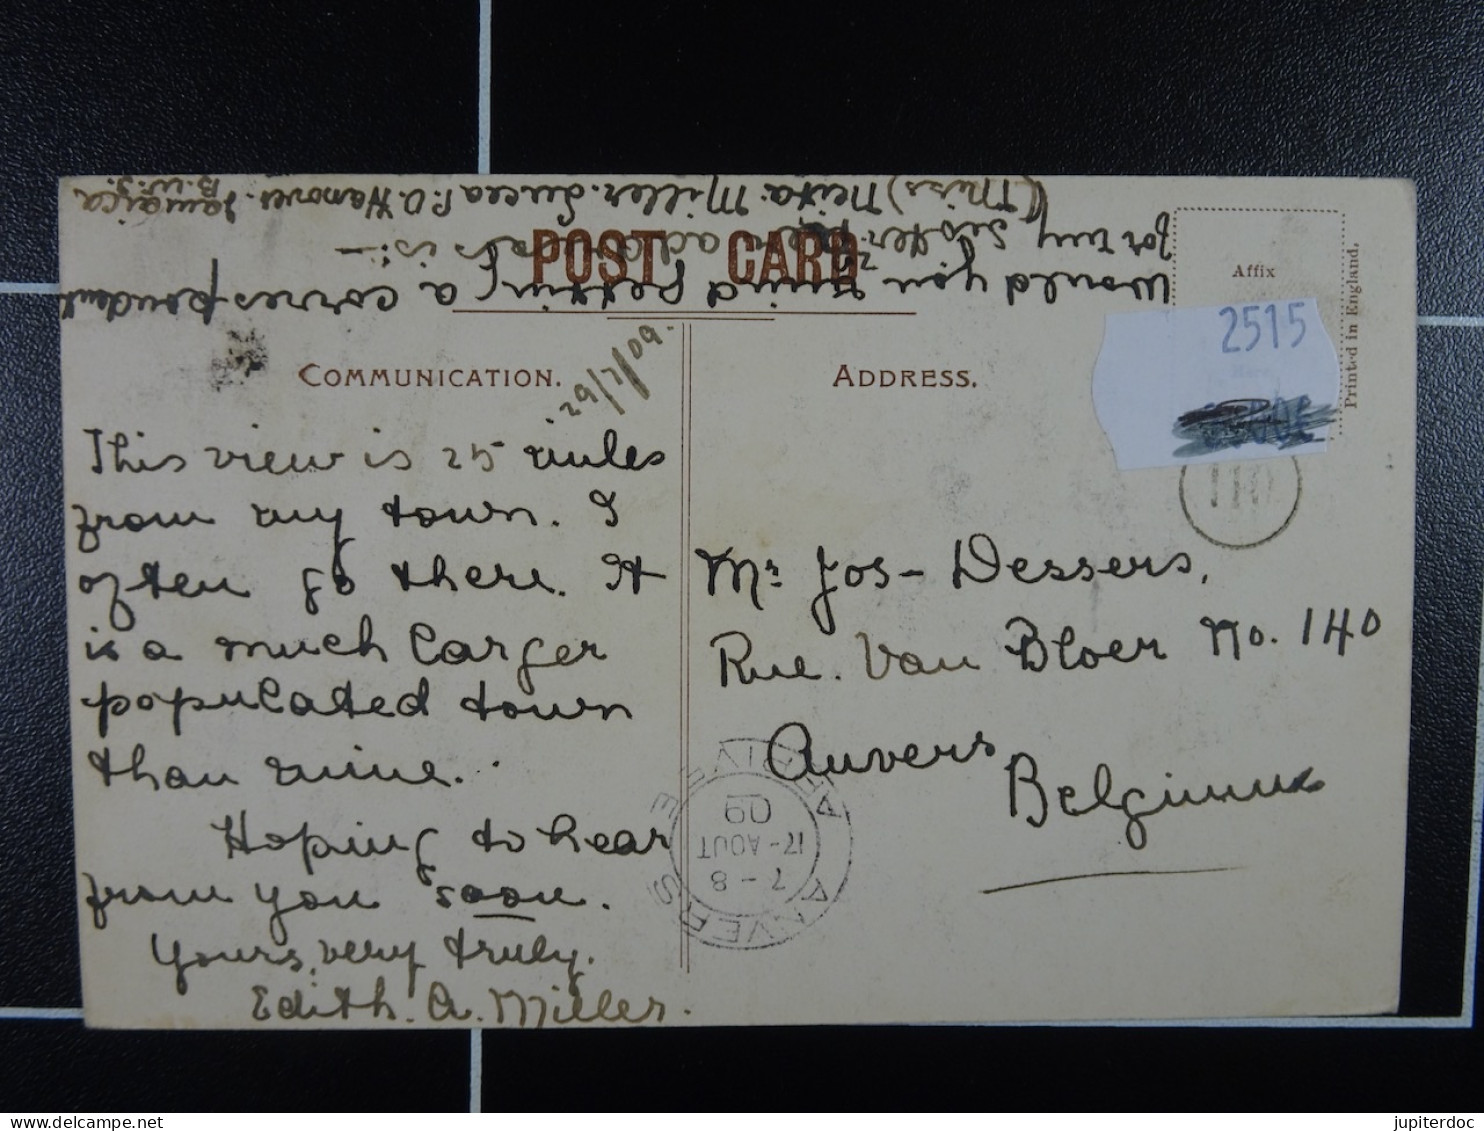 Would you mind getting a correspondent
for my sister? her address is:—
(Miss) Neita Miller. Lucea P.O. Hanover. Jamaica
B.W.I.
POST CARD
Affix
Printed in England.
2515
COMMUNICATION.
ADDRESS.
29/7/09.
This view is 25 miles
from my town. I
often go there. It
is a much larger
populated town
than mine.
Hoping to hear
from you soon.
Yours, very truly,
Edith. A. Miller.
110
Mr Jos - Dessers,
Rue. Van Bloer No. 140
Anvers
Belgium
ANVERS ARRIVEE
7-8
17-AOUT
09
jupiterdoc